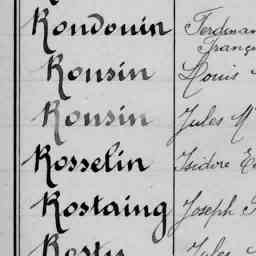 Rondouin Ferdinan
Franço
Ronsin Louis
Ronsin Jules M
Rosselin Isidore E
Rostaing Joseph
Rosty Jules